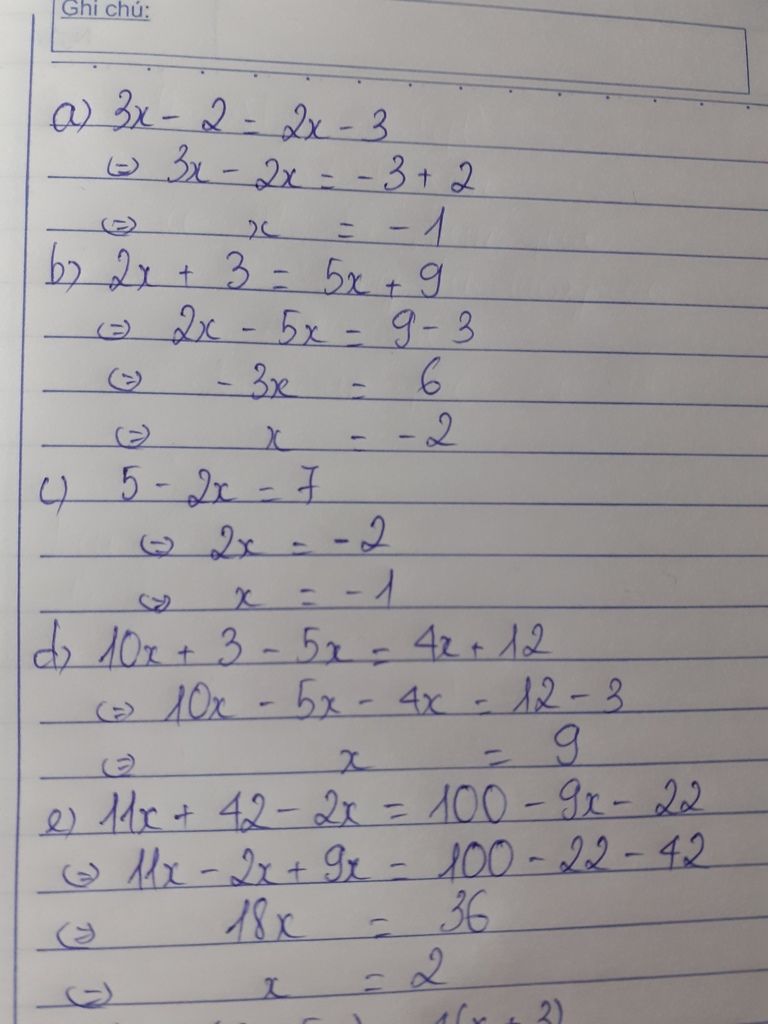 Ghi chú:
a) 3x - 2 = 2x - 3
(=) 3x - 2x = -3 + 2
(=) x = -1
b) 2x + 3 = 5x + 9
(=) 2x - 5x = 9 - 3
(=) -3x = 6
(=) x = -2
c) 5 - 2x = 7
(=) 2x = -2
(=) x = -1
d) 10x + 3 - 5x = 4x + 12
(=) 10x - 5x - 4x = 12 - 3
(=) x = 9
e) 11x + 42 - 2x = 100 - 9x - 22
(=) 11x - 2x + 9x = 100 - 22 - 42
(=) 18x = 36
(=) x = 2